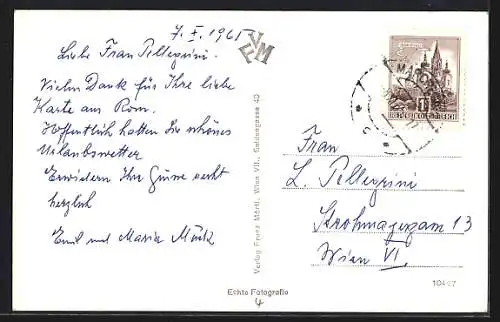 7. X. 1961
Liebe Frau Pellegrini.
Vielen Dank für Ihre liebe
Karte aus Rom.
Hoffentlich hatten Sie schönes
Urlaubswetter
Erwidern Ihre Grüße recht
herzlich
Emil und Maria
Frau
L. Pellegrini
Strohmayergasse 13
Wien VI.
Verlag Franz Mörtl, Wien VII., Seidengasse 42
REPUBLIK ÖSTERREICH
Echte Fotografie
4